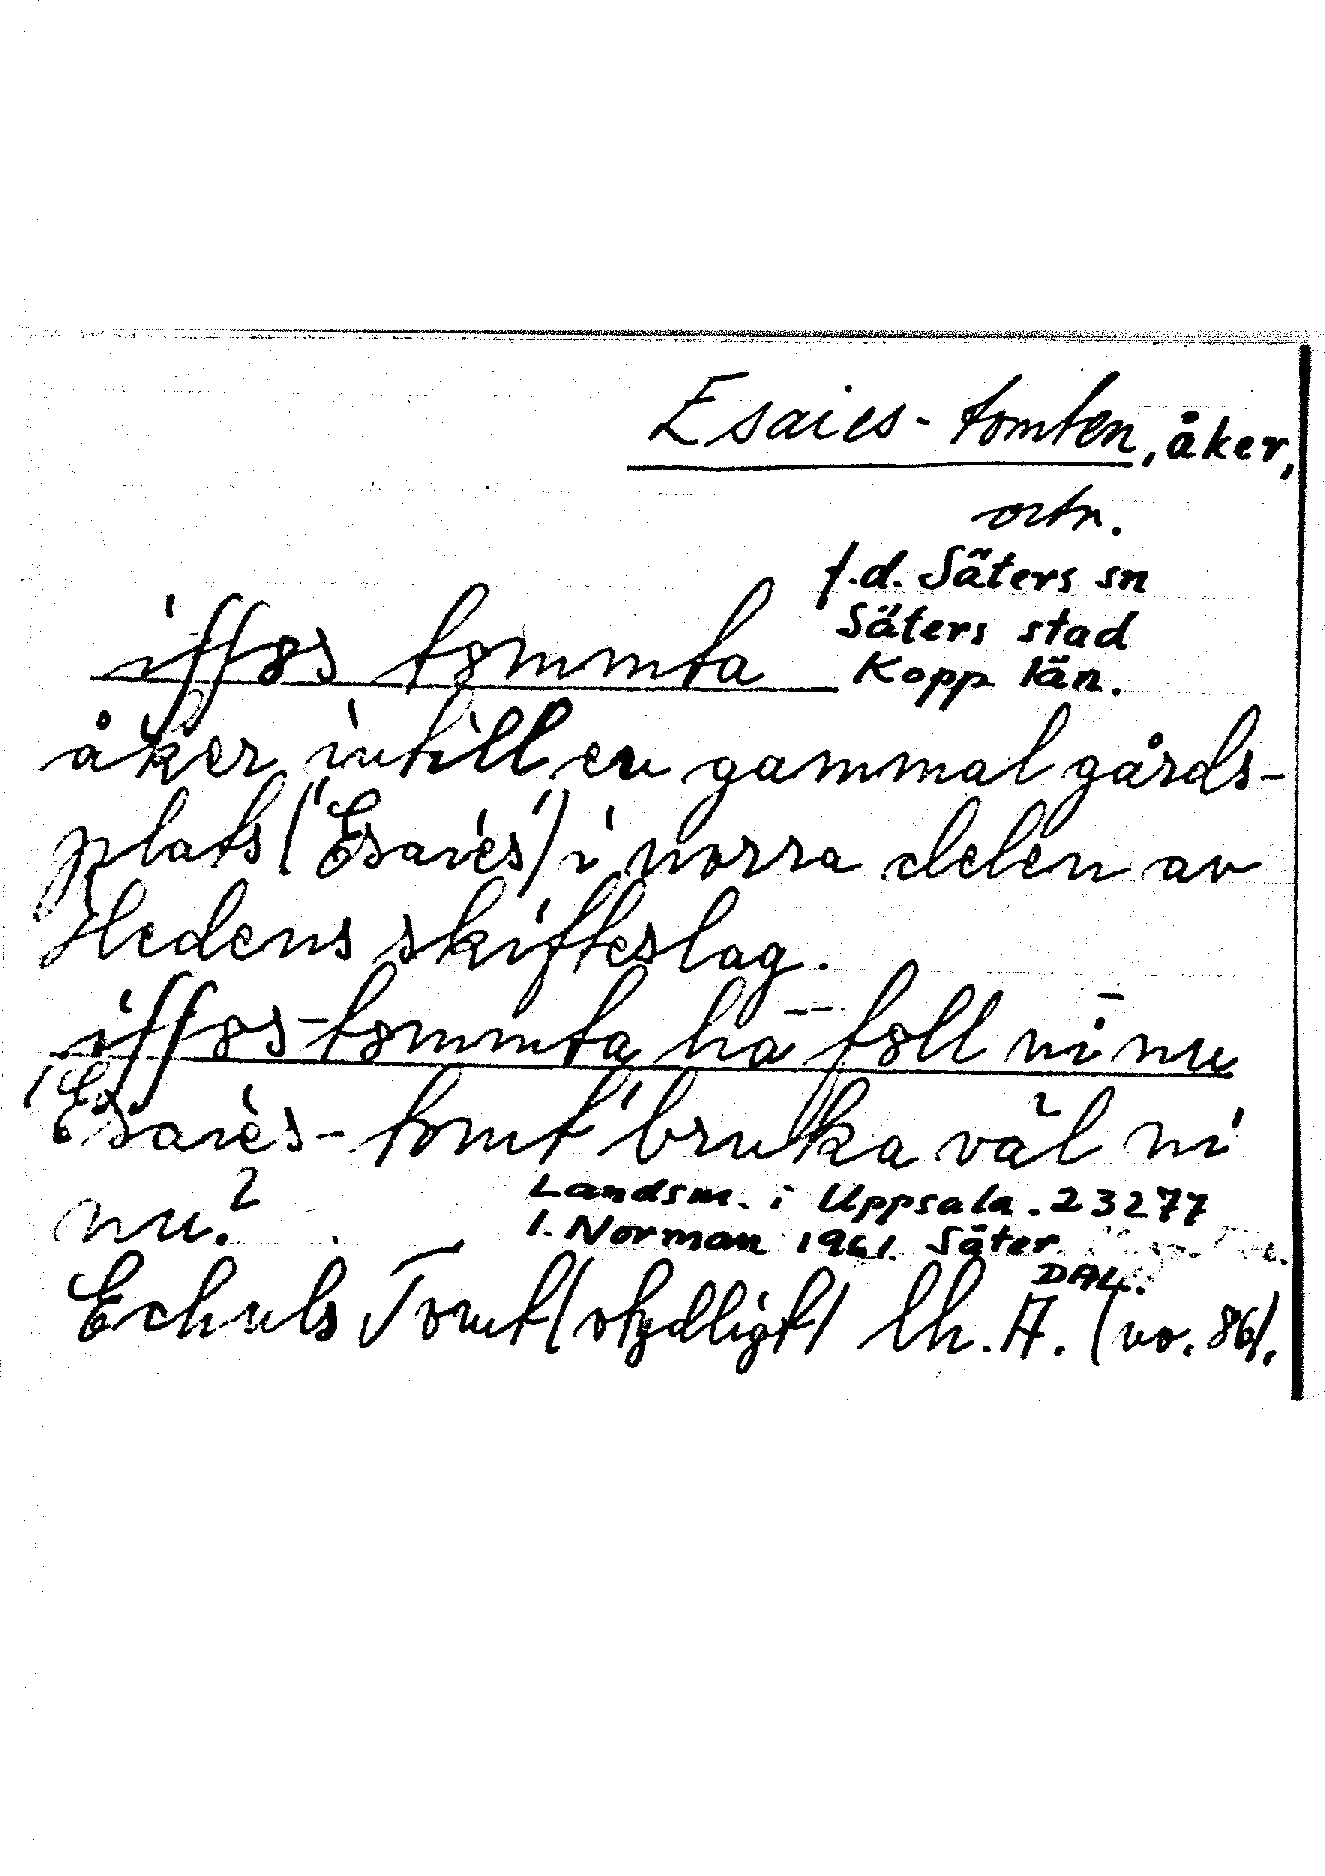 Esaies-tomten, åker,
ortn.
f.d. Säters sn
Säters stad
Kopp län.
iffəs tommta
åker intill en gammal gårds-
plats ('Esaies') i norra delen av
Hedens skifteslag.
iffəs-tommta hä fəll ni nu
'Esaies-tomt' bruka väl ni
nu?
Landsm. i Uppsala. 23277
I. Norman 1961 Säter
DAL.
Tomt (otydligt) lh. A. (no. 86).